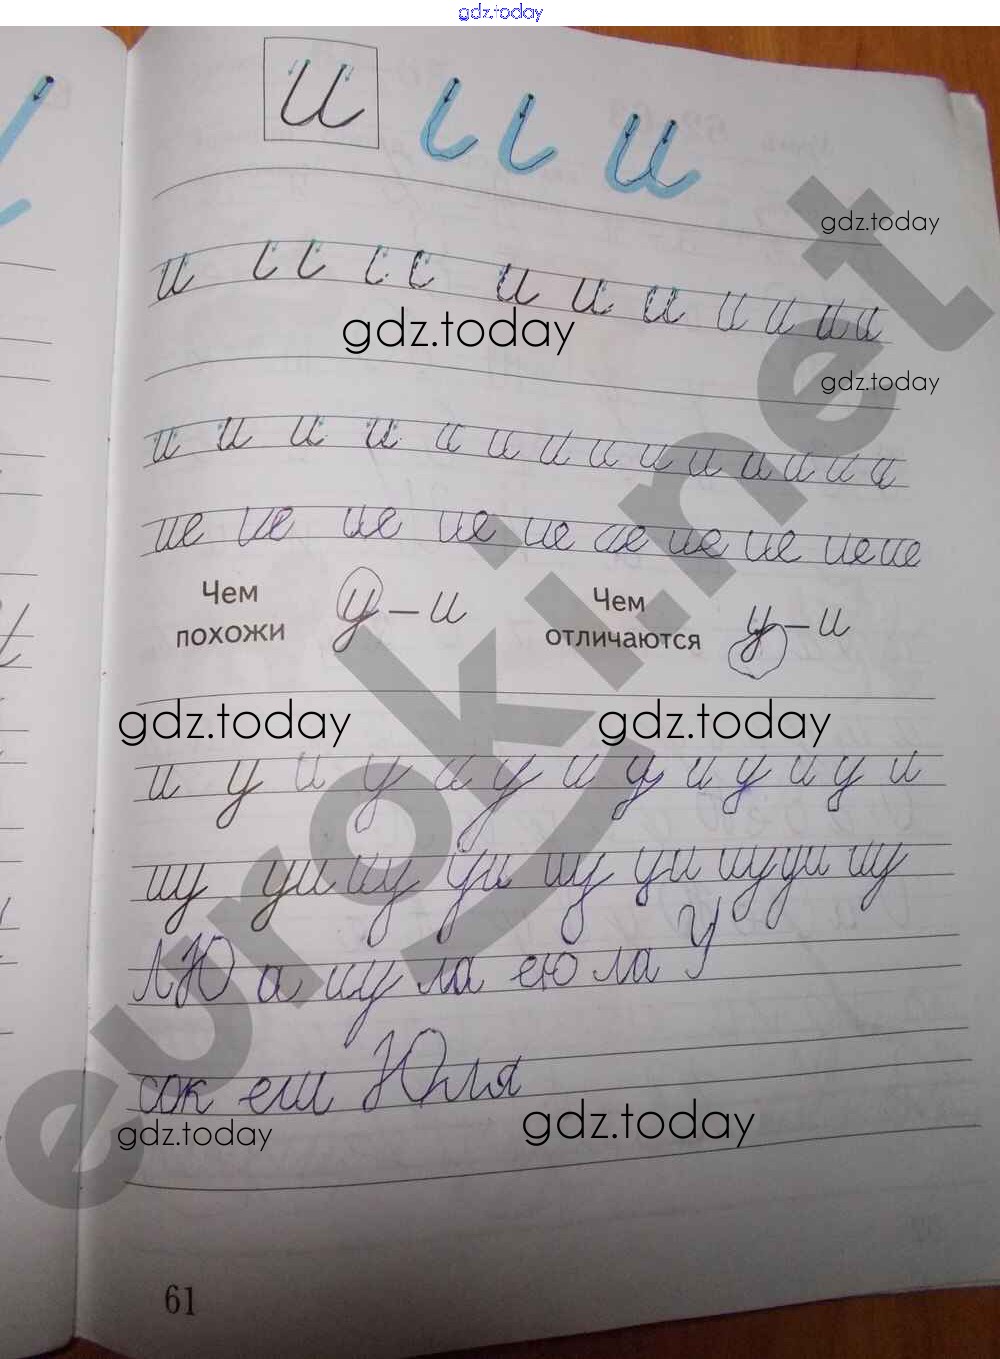 gdz.today
и
и и
gdz.today
и и и и и и и и
gdz.today
gdz.today
и и и и и и и и и и и и и и
ие ие ие ие ие ие ие ие ие ие
Чем похожи у – и Чем отличаются у – и
gdz.today gdz.today
и у и у и у и у и у и у и
иу уи иу уи иу уи иу уи иу
ЛЮ а иу ла ею ла У
сок еш Юля
gdz.today gdz.today
61
euroki.net